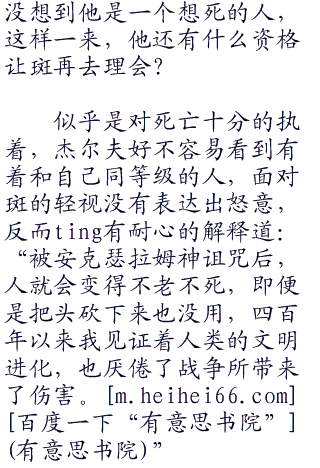 没想到他是一个想死的人，
这样一来，他还有什么资格
让斑再去理会？
似乎是对死亡十分的执
着，杰尔夫好不容易看到有
着和自己同等级的人，面对
斑的轻视没有表达出怒意，
反而ting有耐心的解释道：
“被安克瑟拉姆神诅咒后，
人就会变得不老不死，即便
是把头砍下来也没用，四百
年以来我见证着人类的文明
进化，也厌倦了战争所带来
了伤害。[m.heihei66.com]
[百度一下“有意思书院”]
(有意思书院)”